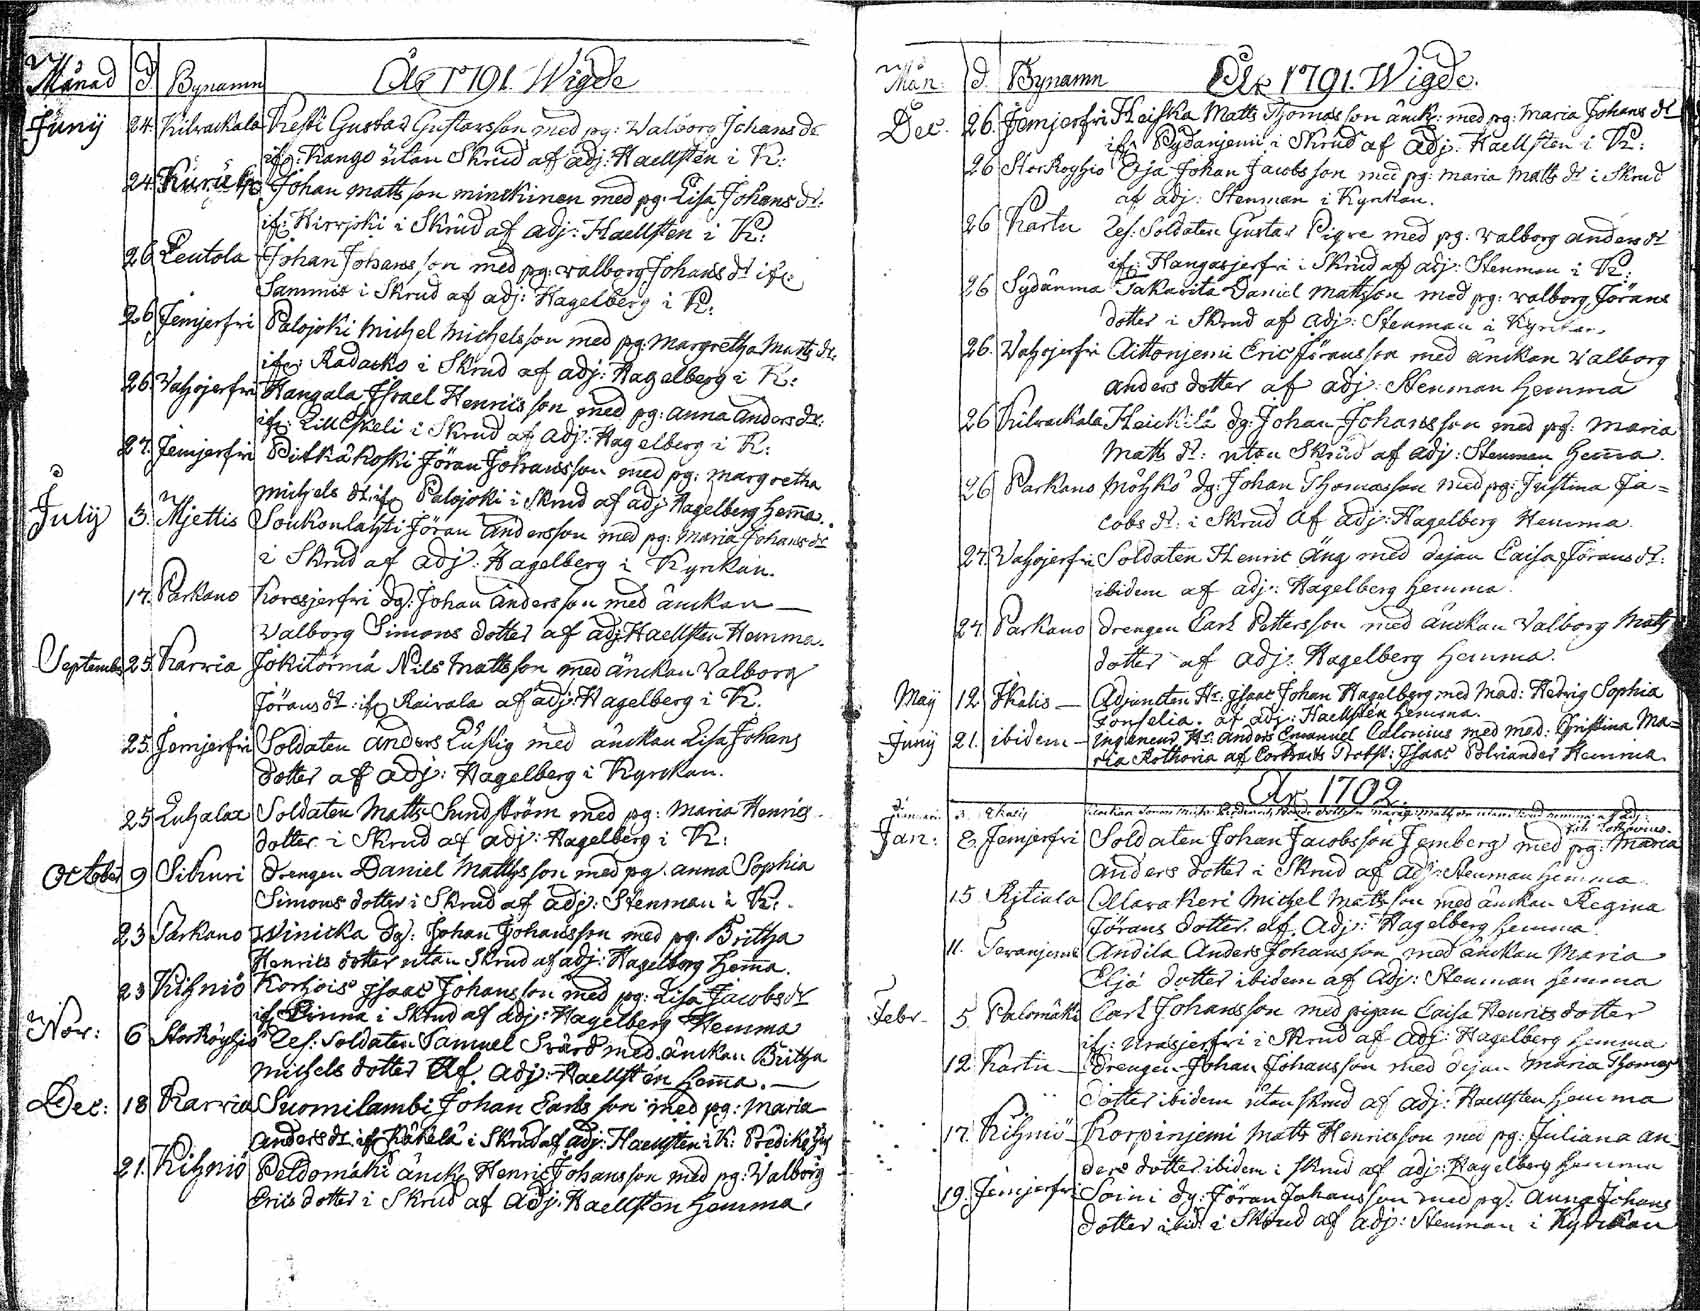 Månad d. Bynamn År 1791. Wigde
Junij 24. Kilvackala Keski Gustav Gustavsson med pg: Valborg Johans dr
ifr: Kango utan Skrud af adj: Haellstén i K:
24. Johan Matts son minskinen med pg: Lisa Johans dr:
ifr: Kirrjoki i Skrud af adj: Haellsten i K:
26 Leutola Johan Johans son med pg: valborg Johans dr ifr:
Sammis i Skrud af adj: Hagelberg i K:
26 Jemjerfri Palojoki Michel Michelsson med pg: Margretha Matts dr.
ifr: Radacko i Skrud af adj: Hagelberg i K:
26. Vahojerfri Hangala Israel Henrics son med pg: anna anders dr:
ifr: Lill Eskeli i Skrud af adj: Hagelberg i K:
27. Jemjerfri Pitkäkoski Jöran Johansson med pg: margretha
Michels dr ifr Palojoki i Skrud af adj Hagelberg hem̄a.
July 3. Mjettis Soukonlahti Jöran andersson med pg: maria Johans dr
i Skrud af adj: Hagelberg i Kyrckan.
17. Parkano Koresjerfri dg: Johan anders son med änckan —
Valborg Simons dotter af adj Haellsten Hemma.
Septembr 25. Karvia Jokitörmä Nils Mattsson med änckan Valborg
Jörans dr: ifr Raivala af adj: Hagelberg i K.
25. Jemjerfri Soldaten anders Lustig med änckan Lisa Johans
dotter af adj: Hagelberg i Kyrckan.
25 Luhalax Soldaten Matts Sundström med pg: maria Henrics
dotter i Skrud af adj: Hagelberg i K:
October 9 Sikuri drengen Daniel Mattsson med pg. anna Sophia
Simons dotter i Skrud af adj: Stenman i K:
23 Parkano Winicka dg: Johan Johansson med pg. Britha
Henrics dotter utan Skrud af adj: Hagelberg hem̄a.
23 Kihniö Korhois Isaac Johansson med pg: Lisa Jacobs dr
ifr Linna i Skrud af adj: Hagelberg Hemma
Nov: 6 Storköyhjö Res: Soldaten Samuel Svärd med änckan Britha
Michels dotter af adj: Haellstén hem̄a. —
Dec: 18 Karvia Suomilambi Johan Earks son med pg: maria
anders dr ifr Käkelä i Skrud af adj: Haellsten i K:
21. Kihniö Peldomäki änck: Henric Johansson med pg: Valborg
Erics dotter i Skrud af adj: Haellsten hemma.
Mån: d. Bynamn År 1791. Wigde.
Dec. 26. Jemjerfri Heiska Matts Thomas son änck: med pg: Maria Johans dr
ifr Sydänjemi i Skrud af adj: Haellsten i K:
26 Storköyhjö Eja Johan Jacobs son med pg: maria Matts dr i Skrud
af adj: Stenman i Kyrckan.
26 Kartu Res: Soldaten Gustav Pigre med pg: valborg anders dr
ifr: Kangasjerfri i Skrud af adj: Stenman i K:
26 Sydänma Takarita Daniel Mattsson med pg: valborg Jörans
dotter i Skrud af adj: Stenman i Kyrckan.
26. Vahojerfri Aittonjemi Eric Jöransson med änckan Valborg
anders dotter af adj: Stenman hemma
26 Kilvackala Heickilä dg: Johan Johansson med pg: Maria
Matts dr: utan Skrud af adj: Stenman hem̄a.
26 Parkano Möhkö dg: Johan Thomasson med pg: Justina Ja=
cobs dr: i Skrud af adj: Hagelberg Hemma.
27. Vahojerfri Soldaten Henric Äng med dejan Caisa Jörans dr:
ibidem af adj: Hagelberg hemma.
27. Parkano drengen Earl Pettersson med änckan Valborg Matts
dotter af adj: Hagelberg hemma.
May 12 Ikalis — Adjuncten Hr: Isaac Johan Hagelberg med Mad: Hedvig Sophia
Fonselia. af adj: Haellstén hemma.
Junij 21. ibidem — Ingeneur Hr: anders Emanuel Calonius med mad: Christina Ma=
ria Rothovia af Contracts Probst: Isaac Polviander Hemma.
År 1792.
Jan: 8. Jemjerfri Soldaten Johan Jacobsson Jemberg med pg: Maria
anders dotter i Skrud af adj: Stenman hemma.
15 Rjtiala Ollarakeri Michel Matts son med änckan Regina
Jörans dotter af adj: Hagelberg hemma.
11. Tevanjemi Andila Anders Johansson med änckan Maria
Eljä dotter ibidem af adj: Stenman hemma
Febr. 5. Palomäki Carl Johansson med pigan Caisa Henrics dotter
ifr: Urasjerfri i Skrud af adj: Hagelberg hemma
12. Kartu — Drengen Johan Johansson med dejan Maria Thomas
dotter ibidem utan skrud af adj: Haellsten hemma
17. Kihniö — Korpinjemi Matts Henricsson med pg: Juliana an-
ders dotter ibidem i skrud af adj: Hagelberg hemma
19. Jemjerfri Soini dg: Jöran Johansson med pg: anna Johans
dotter ibid: i Skrud af adj: Stenman i Kyrckan